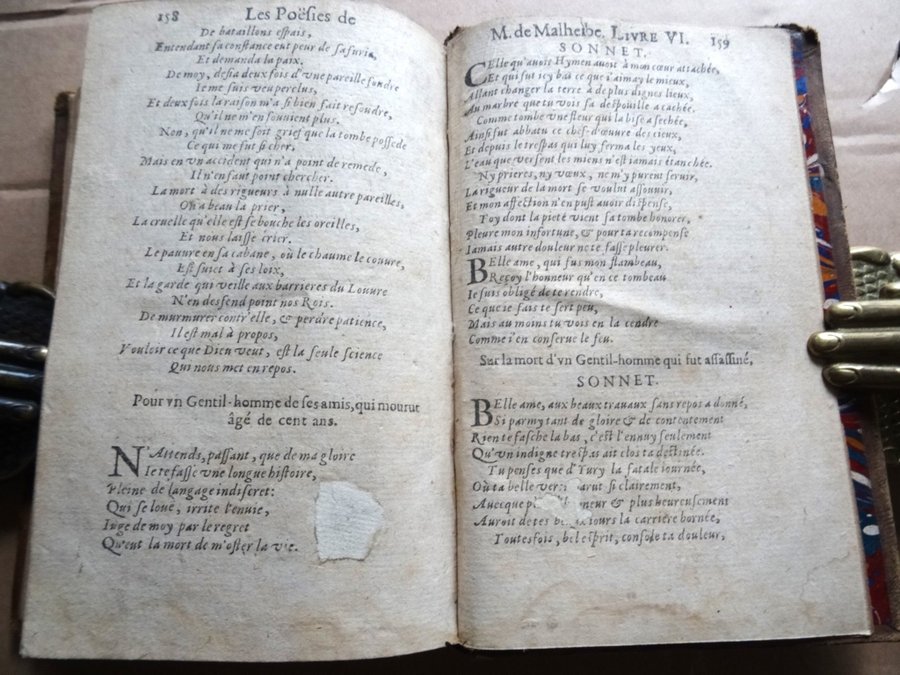 158 Les Poësies de
De bataillons espais,
Entendant sa constance eut peur de sa furie,
Et demanda la paix.
De moy, desia deux fois d'vne pareille foudre
Ie me suis veu perclus,
Et deux fois la raison m'a si bien fait resoudre,
Qu'il ne m'en souuient plus.
Non, qu'il ne me soit grief que la tombe possede
Ce qui me fut si cher,
Mais en vn accident qui n'a point de remede,
Il n'en faut point chercher.
La mort à des rigueurs à nulle autre pareilles,
On a beau la prier,
La cruelle qu'elle est se bouche les oreilles,
Et nous laisse crier.
Le pauure en sa cabane, où le chaume le couure,
Est suiet à ses loix,
Et la garde qui veille aux barrieres du Louure
N'en desfend point nos Rois.
De murmurer contr'elle, & perdre patience,
Il est mal à propos,
Vouloir ce que Dieu veut, est la seule science
Qui nous met en repos.
Pour vn Gentil-homme de ses amis, qui mourut
âgé de cent ans.
N'Attends, passant, que de ma gloire
Ie te fasse vne longue histoire,
Pleine de langage indiscret:
Qui se louë, irrite l'enuie,
Iuge de moy par le regret
Qu'eut la mort de m'oster la vie.
M. de Malherbe. LIVRE VI. 159
SONNET.
CElle qu'auoit Hymen à mon cœur attachée,
Et qui fut icy bas ce que i'aimay le mieux,
Allant changer la terre à de plus dignes lieux,
Au marbre que tu vois sa despouille a cachée.
Comme tombe vne fleur qui la bise a sechée,
Ainsi fut abbatu ce chef-d'œuure des cieux,
Et depuis le trespas qui luy ferma les yeux,
L'eau que versent les miens n'est iamais étanchée.
Ny prieres, ny vœux, ne m'y purent seruir,
La rigueur de la mort se voulut assouuir,
Et mon affection n'en pust auoir dispense,
Toy dont la pieté vient sa tombe honorer,
Pleure mon infortune, & pour ta recompense
Iamais autre douleur ne te fasse pleurer.
BElle ame, qui fus mon flambeau,
Reçoy l'honneur qu'en ce tombeau
Ie suis obligé de te rendre,
Ce que ie fais te sert peu,
Mais au moins tu vois en la cendre
Comme i'en conserue le feu.
Sur la mort d'vn Gentil-homme qui fut assassiné,
SONNET.
BElle ame, aux beaux trauaux sans repos adonné,
Si parmy tant de gloire & de contentement
Rien te fasche la bas, c'est l'ennuy seulement
Qu'vn indigne trespas ait clos ta destinée.
Tu penses que d'Yury la fatale iournée,
Où ta belle parut si clairement,
Auecque plus & plus heureusement
Auroit de tes iours la carriere bornée,
Toutesfois, bel esprit, console ta douleur,